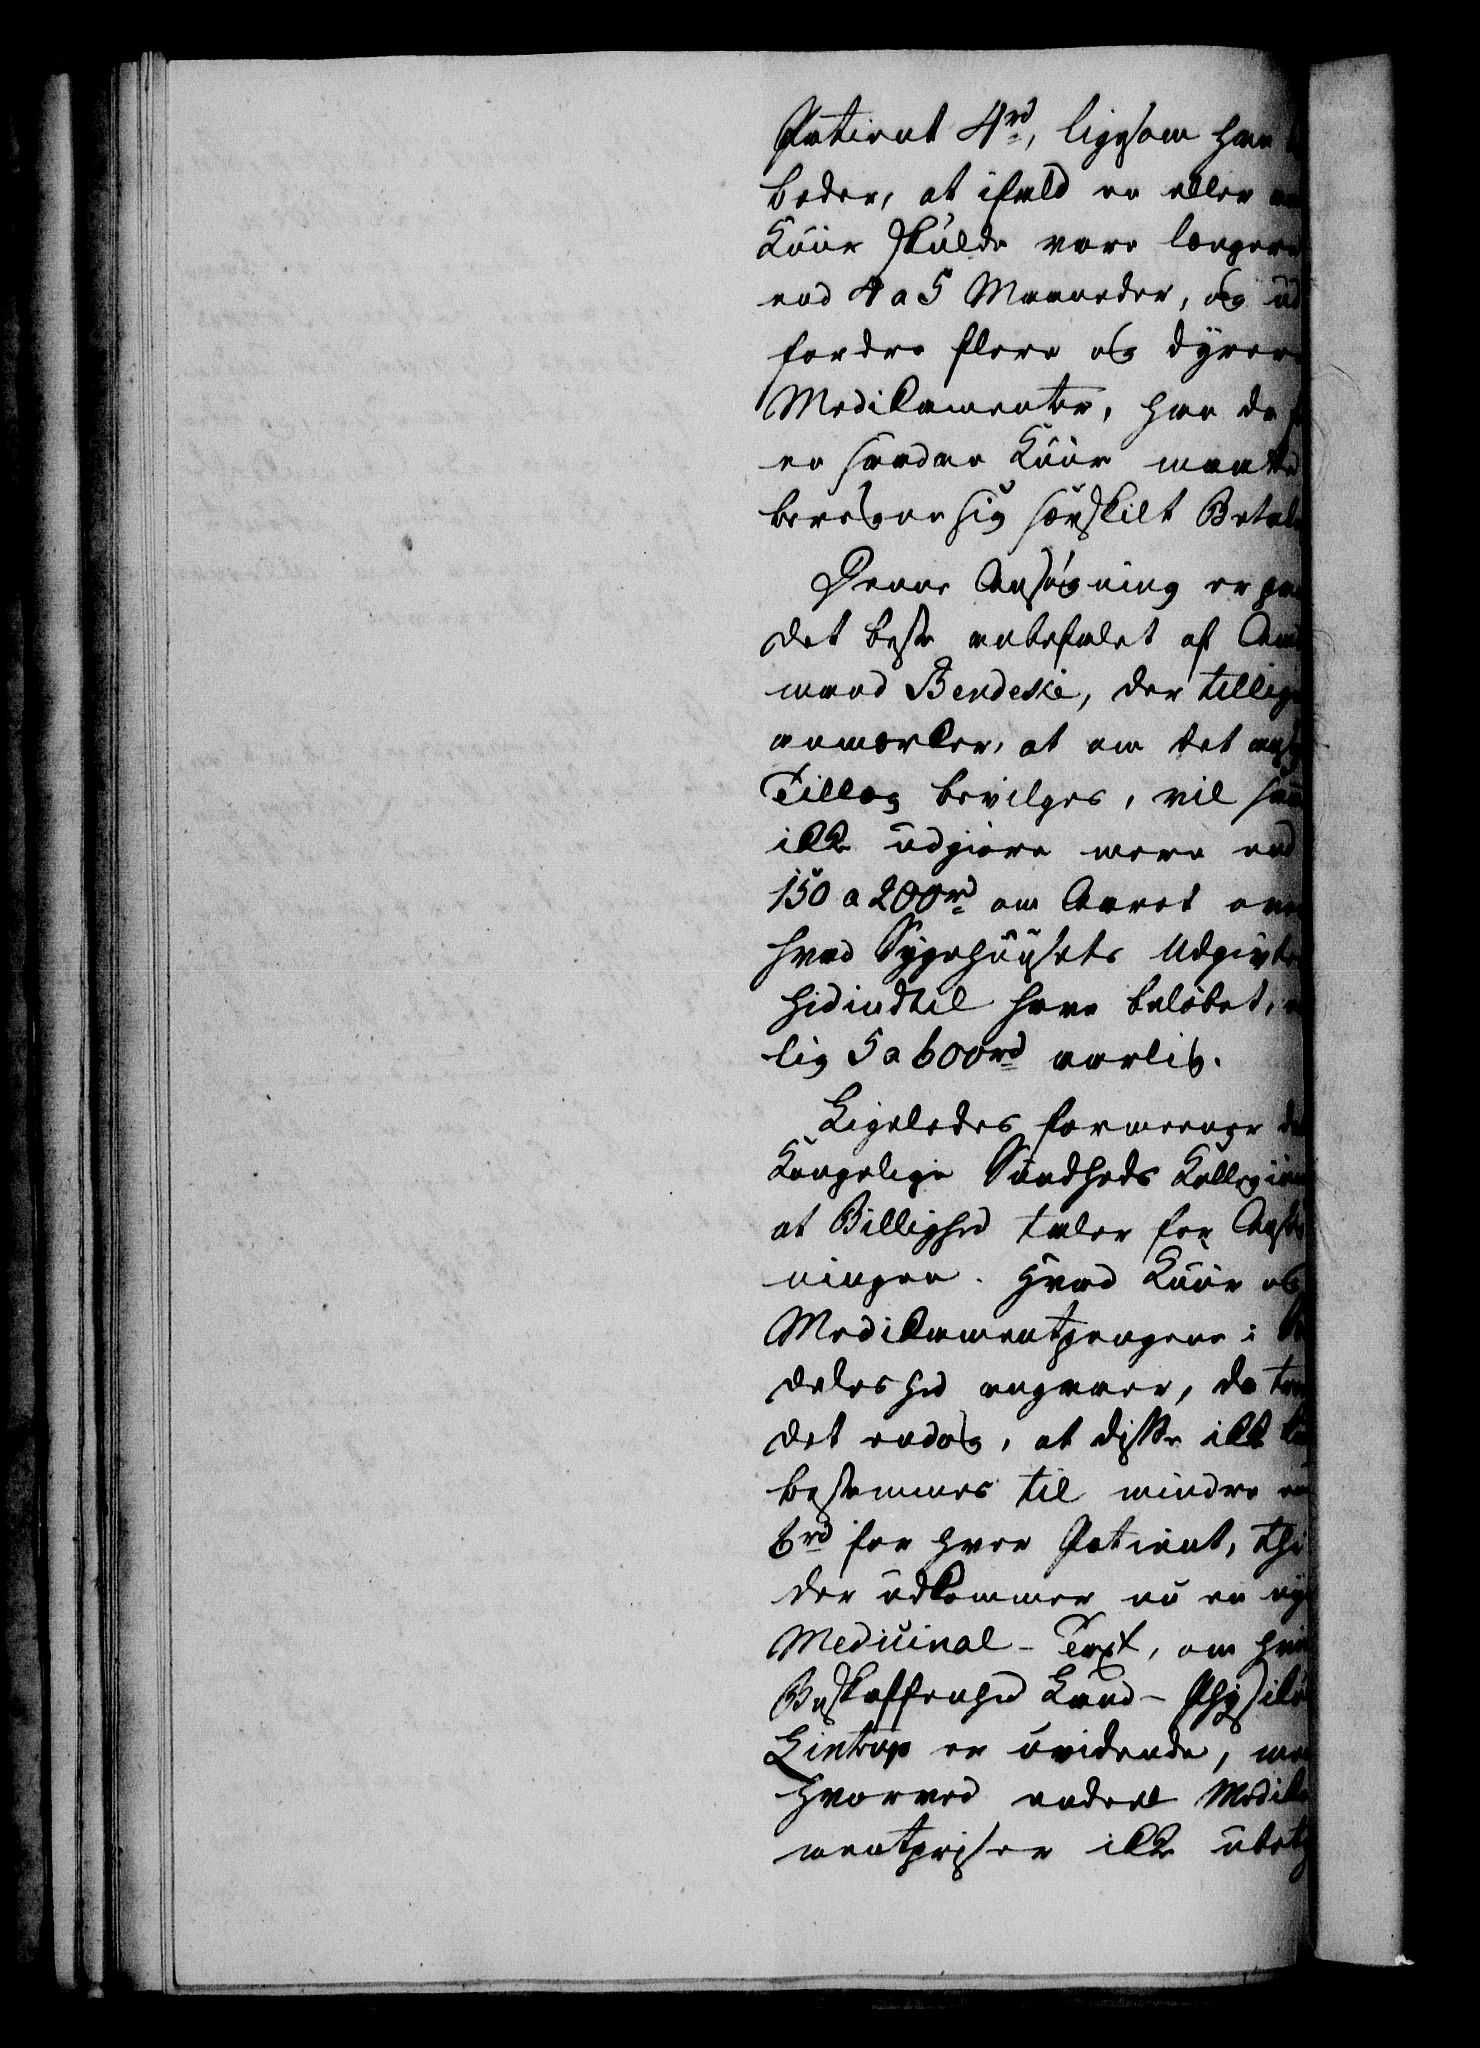 Patient 4rd, ligesom han
beder, at ifald en eller
Kuur skulde vare længere
end 4 a 5 Maaneder, og ud
fordre flere og dyrere
Medikamenter, han da
en saadan Kuur maatte
beregne sig særskilt Betal
Denne Ansøgning er paa
det beste anbefalet af Amt
mand Bendeke, der tillige
anmærker, at om det
Tillæg bevilges, vil
ikke udgiøre mere end
150 a 200rd om Aaret over
hvad Sygehuusets Udgivter
hidindtil have beløbet,
lig 5 a 600rd aarlig.
Ligeledes formeener det
Kongelige Sundheds Kollegium
at Billighed taler for Ansøg
ningen. Hvad Kuur og
Medikamentpengene i
deleshed angaaer, da troer
det endog, at disse ikke
bestemmes til mindre end
6rd for hver Patient, thi
der udkommer nu en nye
Medicinal-Taxt, om hvis
Beskaffenhed Land-Physikus
Lintrup er uvidende, men
hvorved endeel Medika
mentpriser ikke ubety